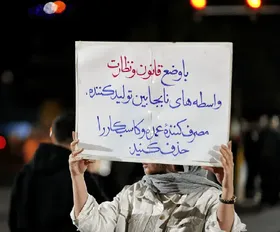 با وضع قانون و نظارت
واسطه های نابجا بین تولیدکننده.
مصرف کننده عمده و کاسبکار را
حذف کنید.